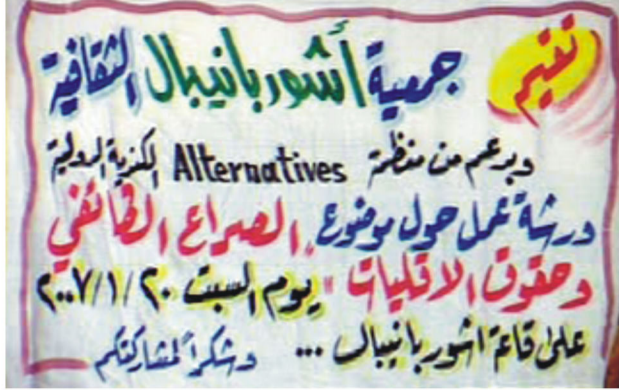 تقيم جمعية أشور بانيبال الثقافية
وبدعم من منظمة Alternatives الكندية الدولية
ورشة عمل حول موضوع "الصراع الطائفي
وحقوق الاقليات" يوم السبت ٢٠٠٧/١/٢٠
على قاعة اشور بانيبال ... وشكراً لمشاركتكم